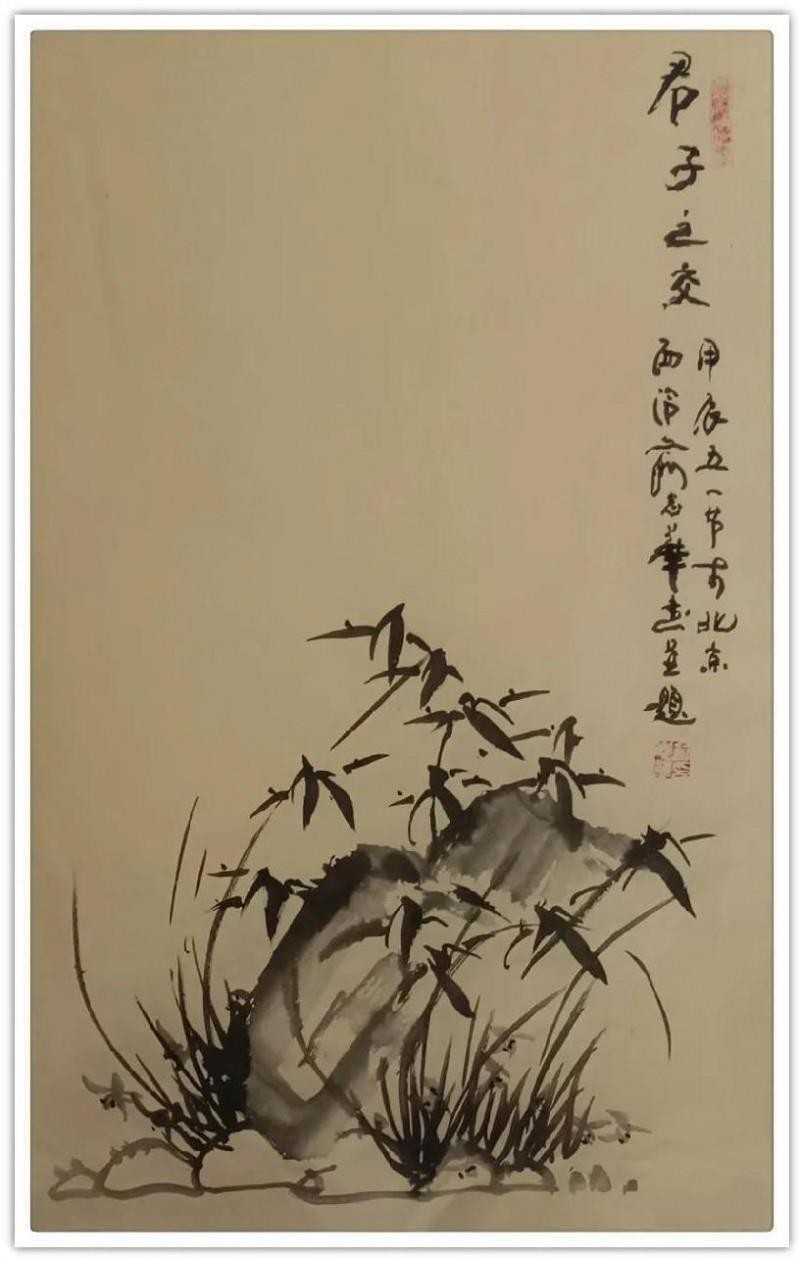 君子之交
甲辰五一节于北京
西泠 志华画並题